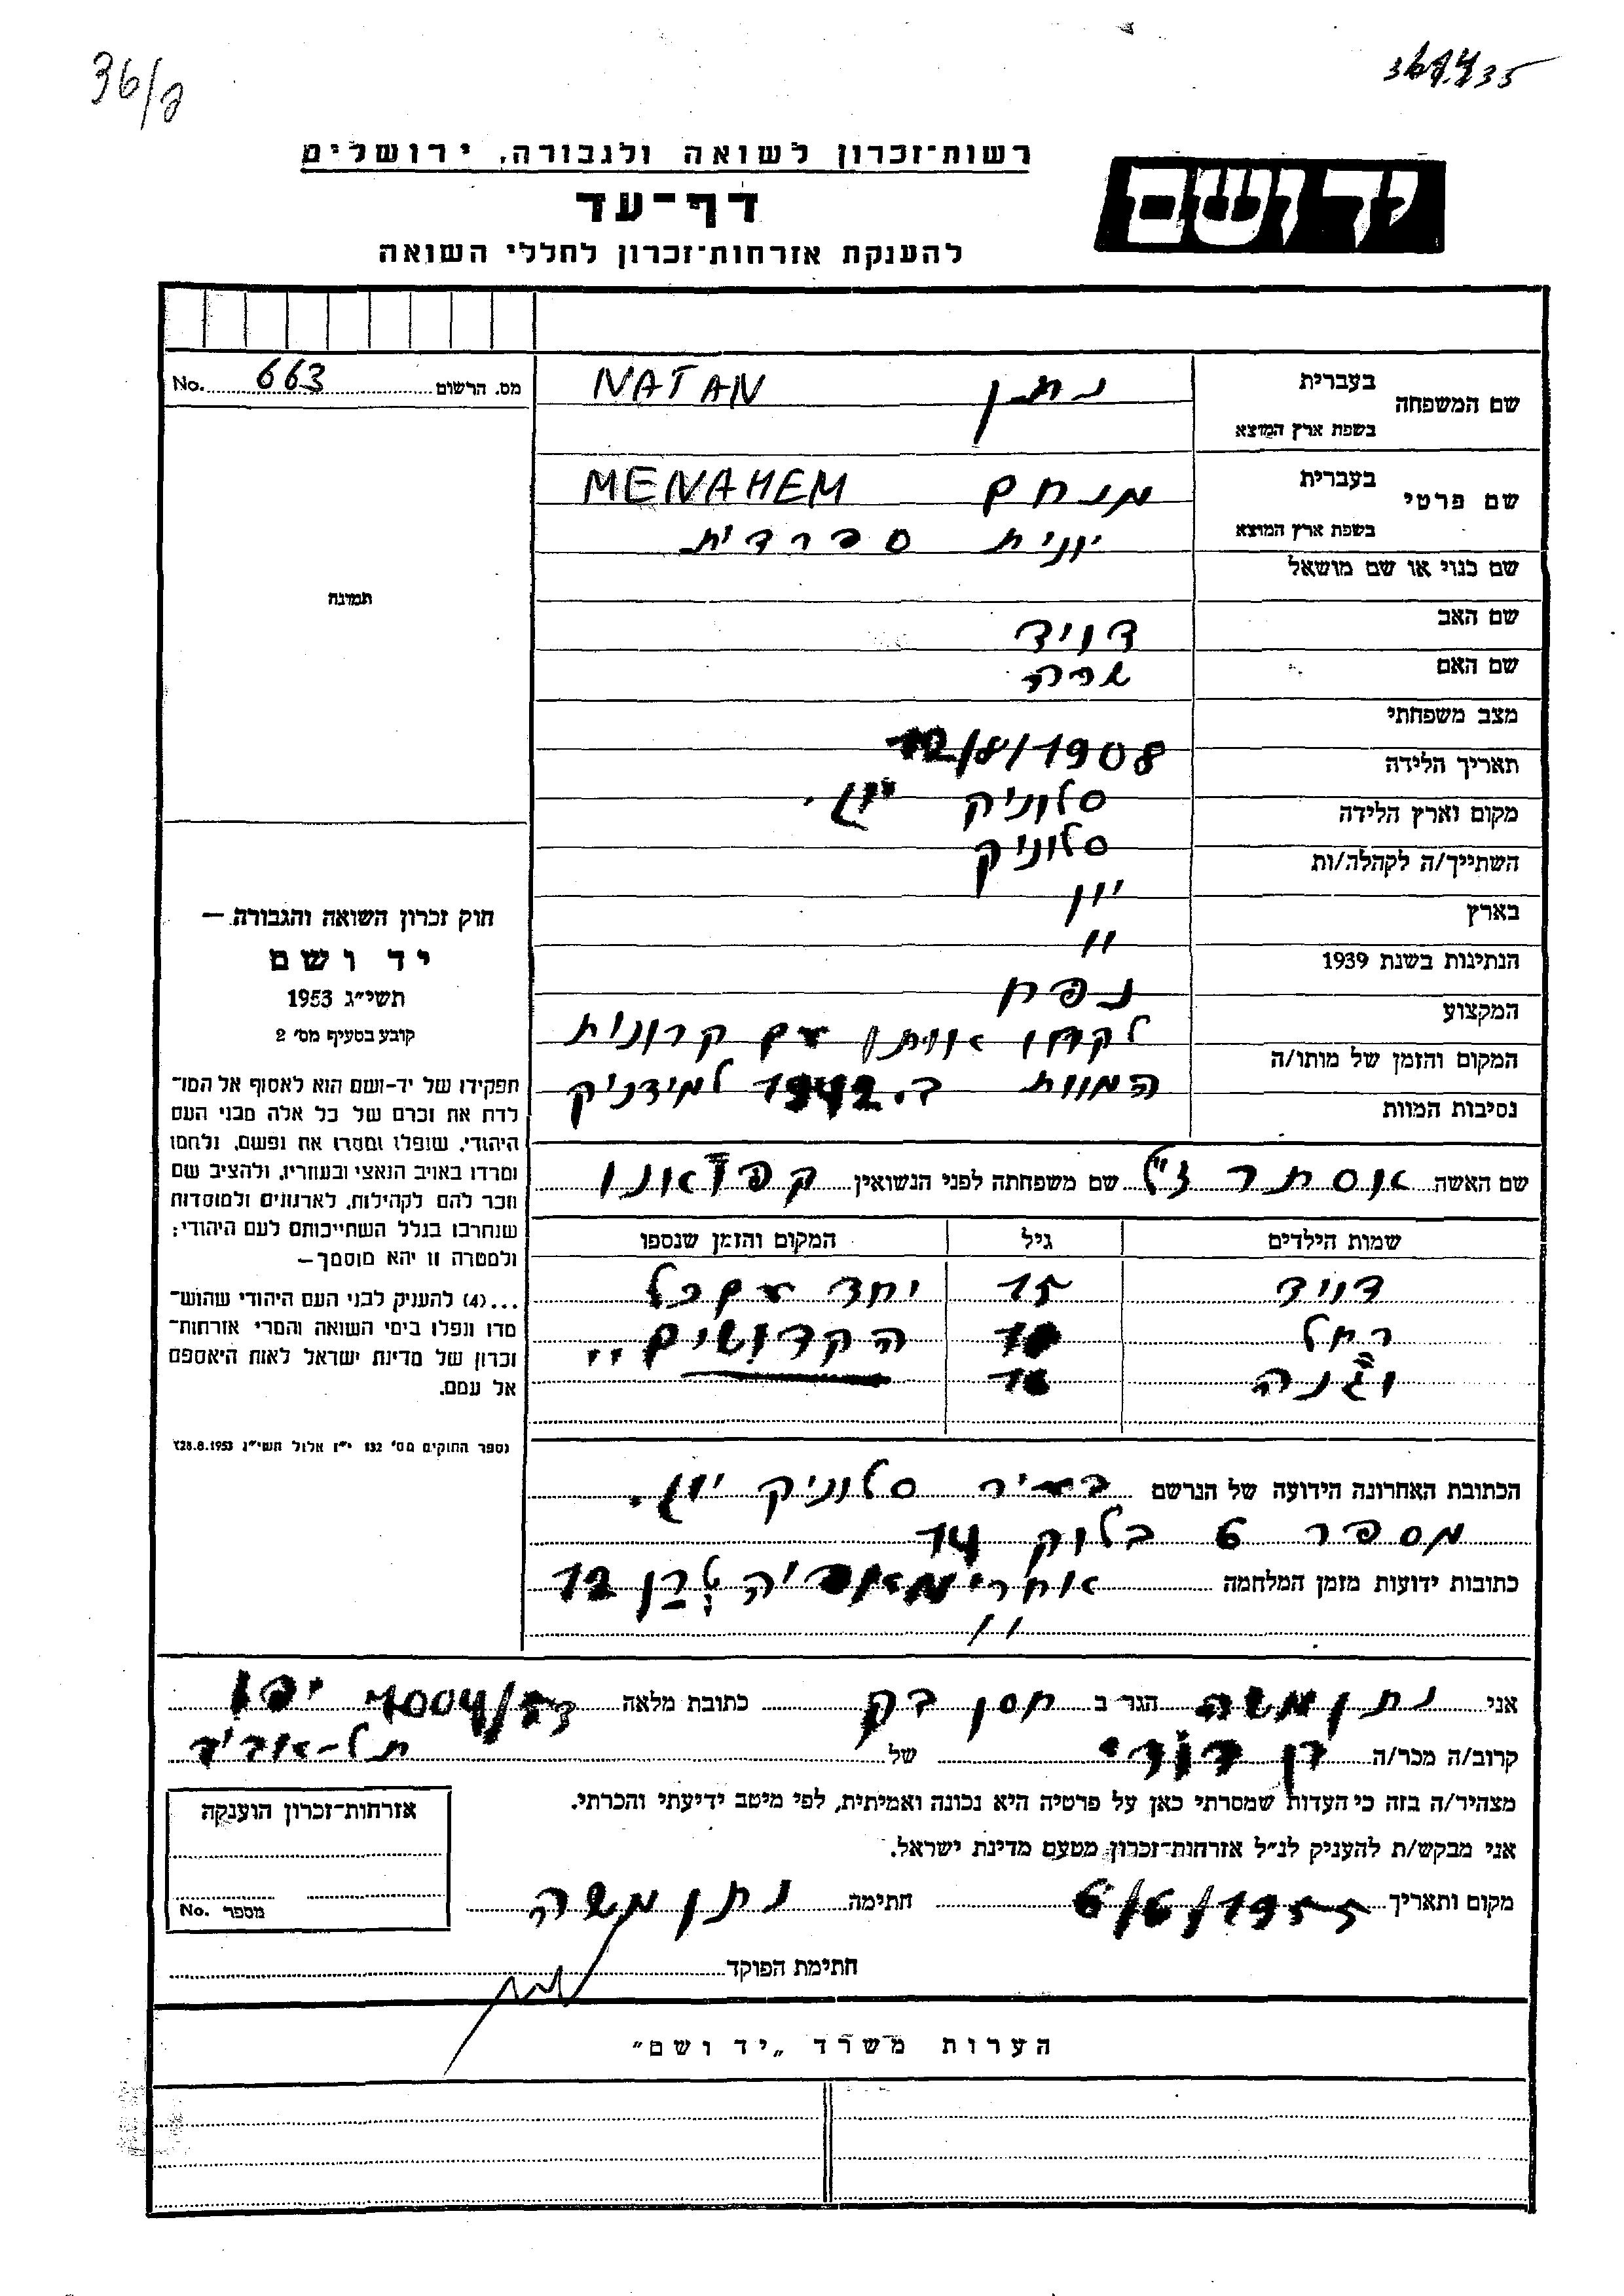 36/ג
רשות־זכרון לשואה ולגבורה, ירושלים
יד ושם
דף־עד
להענקת אזרחות־זכרון לחללי השואה
מס. הרשום 663 No.
שם המשפחה
בעברית נתן NATAN
בשפת ארץ המוצא
שם פרטי
בעברית מנחם MENAHEM
בשפת ארץ המוצא יונית ספרדית
שם כנוי או שם מושאל
שם האב דויד
שם האם שרה
מצב משפחתי
תאריך הלידה 12/8/1908
מקום וארץ הלידה סלוניק יון.
השתייך/ה לקהלה/ות סלוניק
בארץ יון
הנתינות בשנת 1939 "
המקצוע נפח
המקום והזמן של מותו/ה לקחו אותו עם קרונות
נסיבות המוות המוות ב. 1942 למידניק
שם האשה אסתר ז"ל שם משפחתה לפני הנשואין
שמות הילדים גיל המקום והזמן שנספו
דויד 15 יחד עם כל
רחל הקדושים"
הכתובת האחרונה הידועה של הנרשם בעיר סלוניק יון.
מספר 6 בלוק 14
כתובות ידועות מזמן המלחמה 12
"
תמונה
חוק זכרון השואה והגבורה —
יד ושם
תשי״ג 1953
קובע בסעיף מס׳ 2
תפקידו של יד-ושם הוא לאסוף אל המו־
לדת את זכרם של כל אלה מבני העם
היהודי, שנפלו ומסרו את נפשם, נלחמו
ומרדו באויב הנאצי ובעוזריו, ולהציב שם
וזכר להם לקהילות, לארגונים ולמוסדות
שנחרבו בגלל השתייכותם לעם היהודי;
ולמטרה זו יהא מוסמך—
...(4) להענקת לבני העם היהודי שהוש־
מדו ונפלו בימי השואה והמרי אזרחות־
זכרון של מדינת ישראל לאות היאספם
אל עמם.
נספר החוקים מס׳ 132 י״ז אלול תשי״ג 28.8.1953
אני נתן משה הגר ב חסן בק כתובת מלאה יפו
קרוב/ה מכר/ה בן דודי של תל-אביב
מצהיר/ה בזה כי העדות שמסרתי כאן על פרטיה היא נכונה ואמיתית, לפי מיטב ידיעתי והכרתי.
אני מבקש/ת להעניק לנ״ל אזרחות־זכרון מטעם מדינת ישראל.
מקום ותאריך 6/6/1955 חתימה נתן משה
חתימת הפוקד
אזרחות־זכרון הוענקה
מספר No.
הערות משרד „יד ושם״